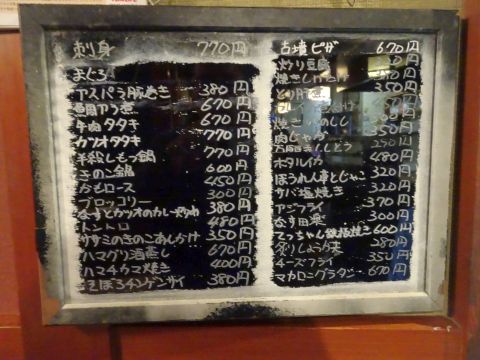 刺身 770円
まぐろ
アスパラ豚巻き 380円
魚アラ煮 670円
牛肉タタキ 670円
カツオタタキ 770円
もつ鍋 770円
きのこ鍋 600円
かもロース 450円
ブロッコリー 300円
なすとカツオのカレー炒め 380
トントロ 480円
ササミのきのこあんかけ 350円
ハマグリ酒蒸し 670円
ハマチカマ焼き 400円
そぼろチンゲンサイ 380円
古墳ピザ 670円
炒り豆腐
とり肝煮 350
肉じゃが 350
万願寺しんとう 290円
ホタルイカ 480円
ほうれん草とじゃこ 320円
サバ塩焼き 320円
アジフライ 370円
なす田楽 300円
てっちゃん鉄板焼き 600円
炙りしょうが天 280円
チーズフライ 350円
マカロニグラタン 670円